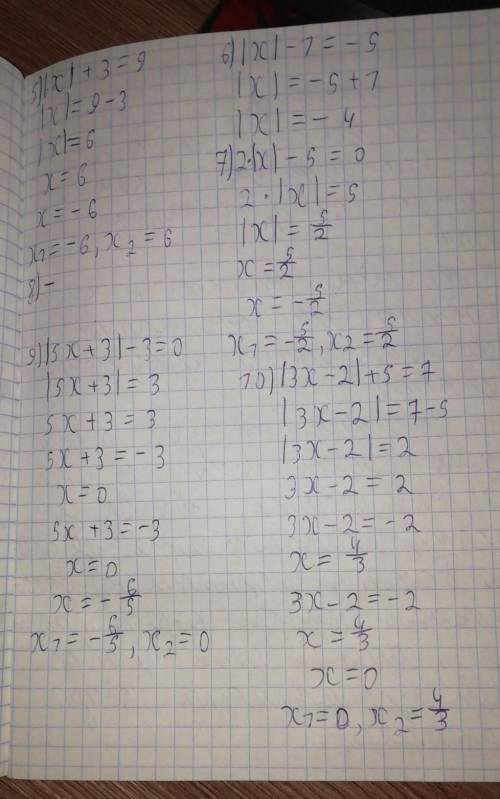 5) |x| + 3 = 9
|x| = 9 - 3
|x| = 6
x = 6
x = -6
x₁ = -6, x₂ = 6
8) -
9) |5x + 3| - 3 = 0
|5x + 3| = 3
5x + 3 = 3
5x + 3 = -3
x = 0
5x + 3 = -3
x = 0
x = -6/5
x₁ = -6/5, x₂ = 0
6) |x| - 1 = -5
|x| = -5 + 1
|x| = -4
7) 2·|x| - 5 = 0
2·|x| = 5
|x| = 5/2
x = 5/2
x = -5/2
x₁ = -5/2, x₂ = 5/2
10) |3x - 2| + 5 = 7
|3x - 2| = 7 - 5
|3x - 2| = 2
3x - 2 = 2
3x - 2 = -2
x = 4/3
3x - 2 = -2
x = 4/3
x = 0
x₁ = 0, x₂ = 4/3